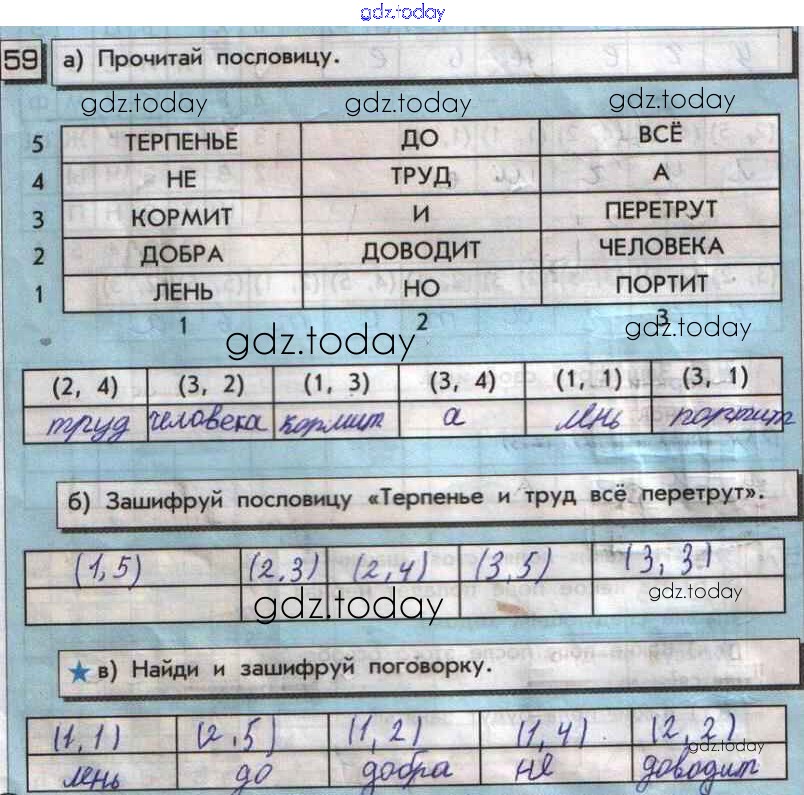 gdz.today
59 а) Прочитай пословицу.
gdz.today gdz.today gdz.today
5 ТЕРПЕНЬЕ ДО ВСЁ
4 НЕ ТРУД А
3 КОРМИТ И ПЕРЕТРУТ
2 ДОБРА ДОВОДИТ ЧЕЛОВЕКА
1 ЛЕНЬ НО ПОРТИТ
1 2 3
gdz.today gdz.today
(2, 4) (3, 2) (1, 3) (3, 4) (1, 1) (3, 1)
труд человека кормит а лень портит
б) Зашифруй пословицу «Терпенье и труд всё перетрут».
(1,5) (2,3) (2,4) (3,5) (3,3)
gdz.today gdz.today
в) Найди и зашифруй поговорку.
(1,1) (2,5) (1,2) (1,4) (2,2)
gdz.today
лень до добра не доводит